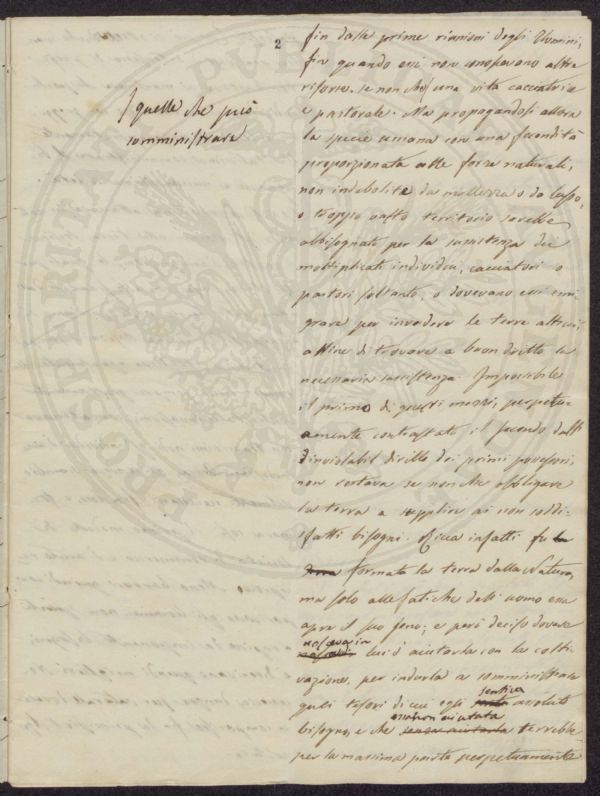 2
ſ quelle che può
somminiſtrare
fin dalle prime riunioni degli Uomini,
fin quando essi non conoſcevano altre
riſorse, se non che una vita cacciatrice
e pastorale. Ma propagandoſi allora
la specie umana con una fecondità
proporzionata alle forze naturali,
non indebolite da mollezza o da luſso,
o troppo vasto territorio sarebbe
abbiſognato per la sussistenza dei
moltiplicati individui, cacciatori o
pastori ſoltanto, o dovevano essi emi-
grare per invadere le terre altrui,
affine di trovare a buon diritto la
necessaria sussistenza. Impossibile
il primo di questi mezzi, perpetu-
amente contraſtato il secondo dall'
inviolabil diritto dei primi possessori,
non restava se non che obbligare
la terra a supplire ai non soddi-
sfatti biſogni. Ricca infatti fu la
formata la terra dalla Natura,
ma solo alle fatiche dell'uomo essa
apre il suo seno; e però deciso dovere
naſceva in
lui d'aiutarla con la colti-
vazione, per indurla a somministrare
quei tesori di cui egli sentiva assoluto
biſogno, e che non aiutata terrebbe
per la massima parte perpetuamente
PUBLICA
PROSPERITAS